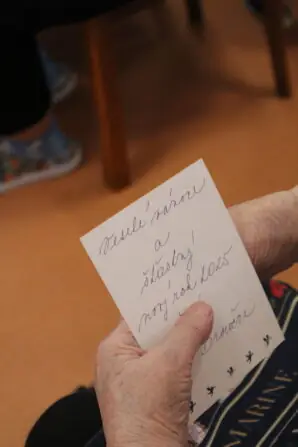 Veselé vánoce
a
šťastný
nový rok 2025
MARINE